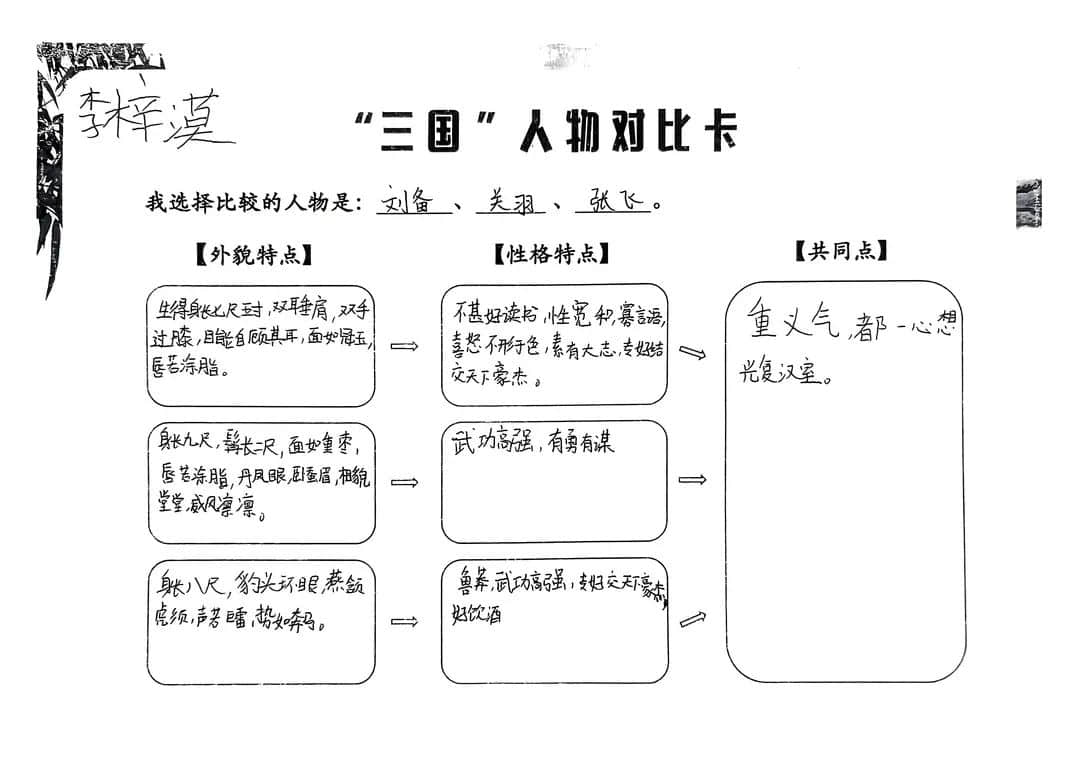 李梓漠
“三国”人物对比卡
我选择比较的人物是：刘备、关羽、张飞。
【外貌特点】
【性格特点】
【共同点】
生得身长七尺五寸，双耳垂肩，双手
过膝，目能自顾其耳，面如冠玉，
唇若涂脂。
不甚好读书，性宽和，寡言语，
喜怒不形行色，素有大志，专好结
交天下豪杰。
重义气，都一心想
兴复汉室。
身长九尺，髯长二尺，面如重枣，
唇若涂脂，丹凤眼，卧蚕眉，相貌
堂堂，威风凛凛。
武功高强，有勇有谋
身长八尺，豹头环眼，燕颔
虎须，声若巨雷，势如奔马。
鲁莽，武功高强，专好交天下豪杰，
好饮酒